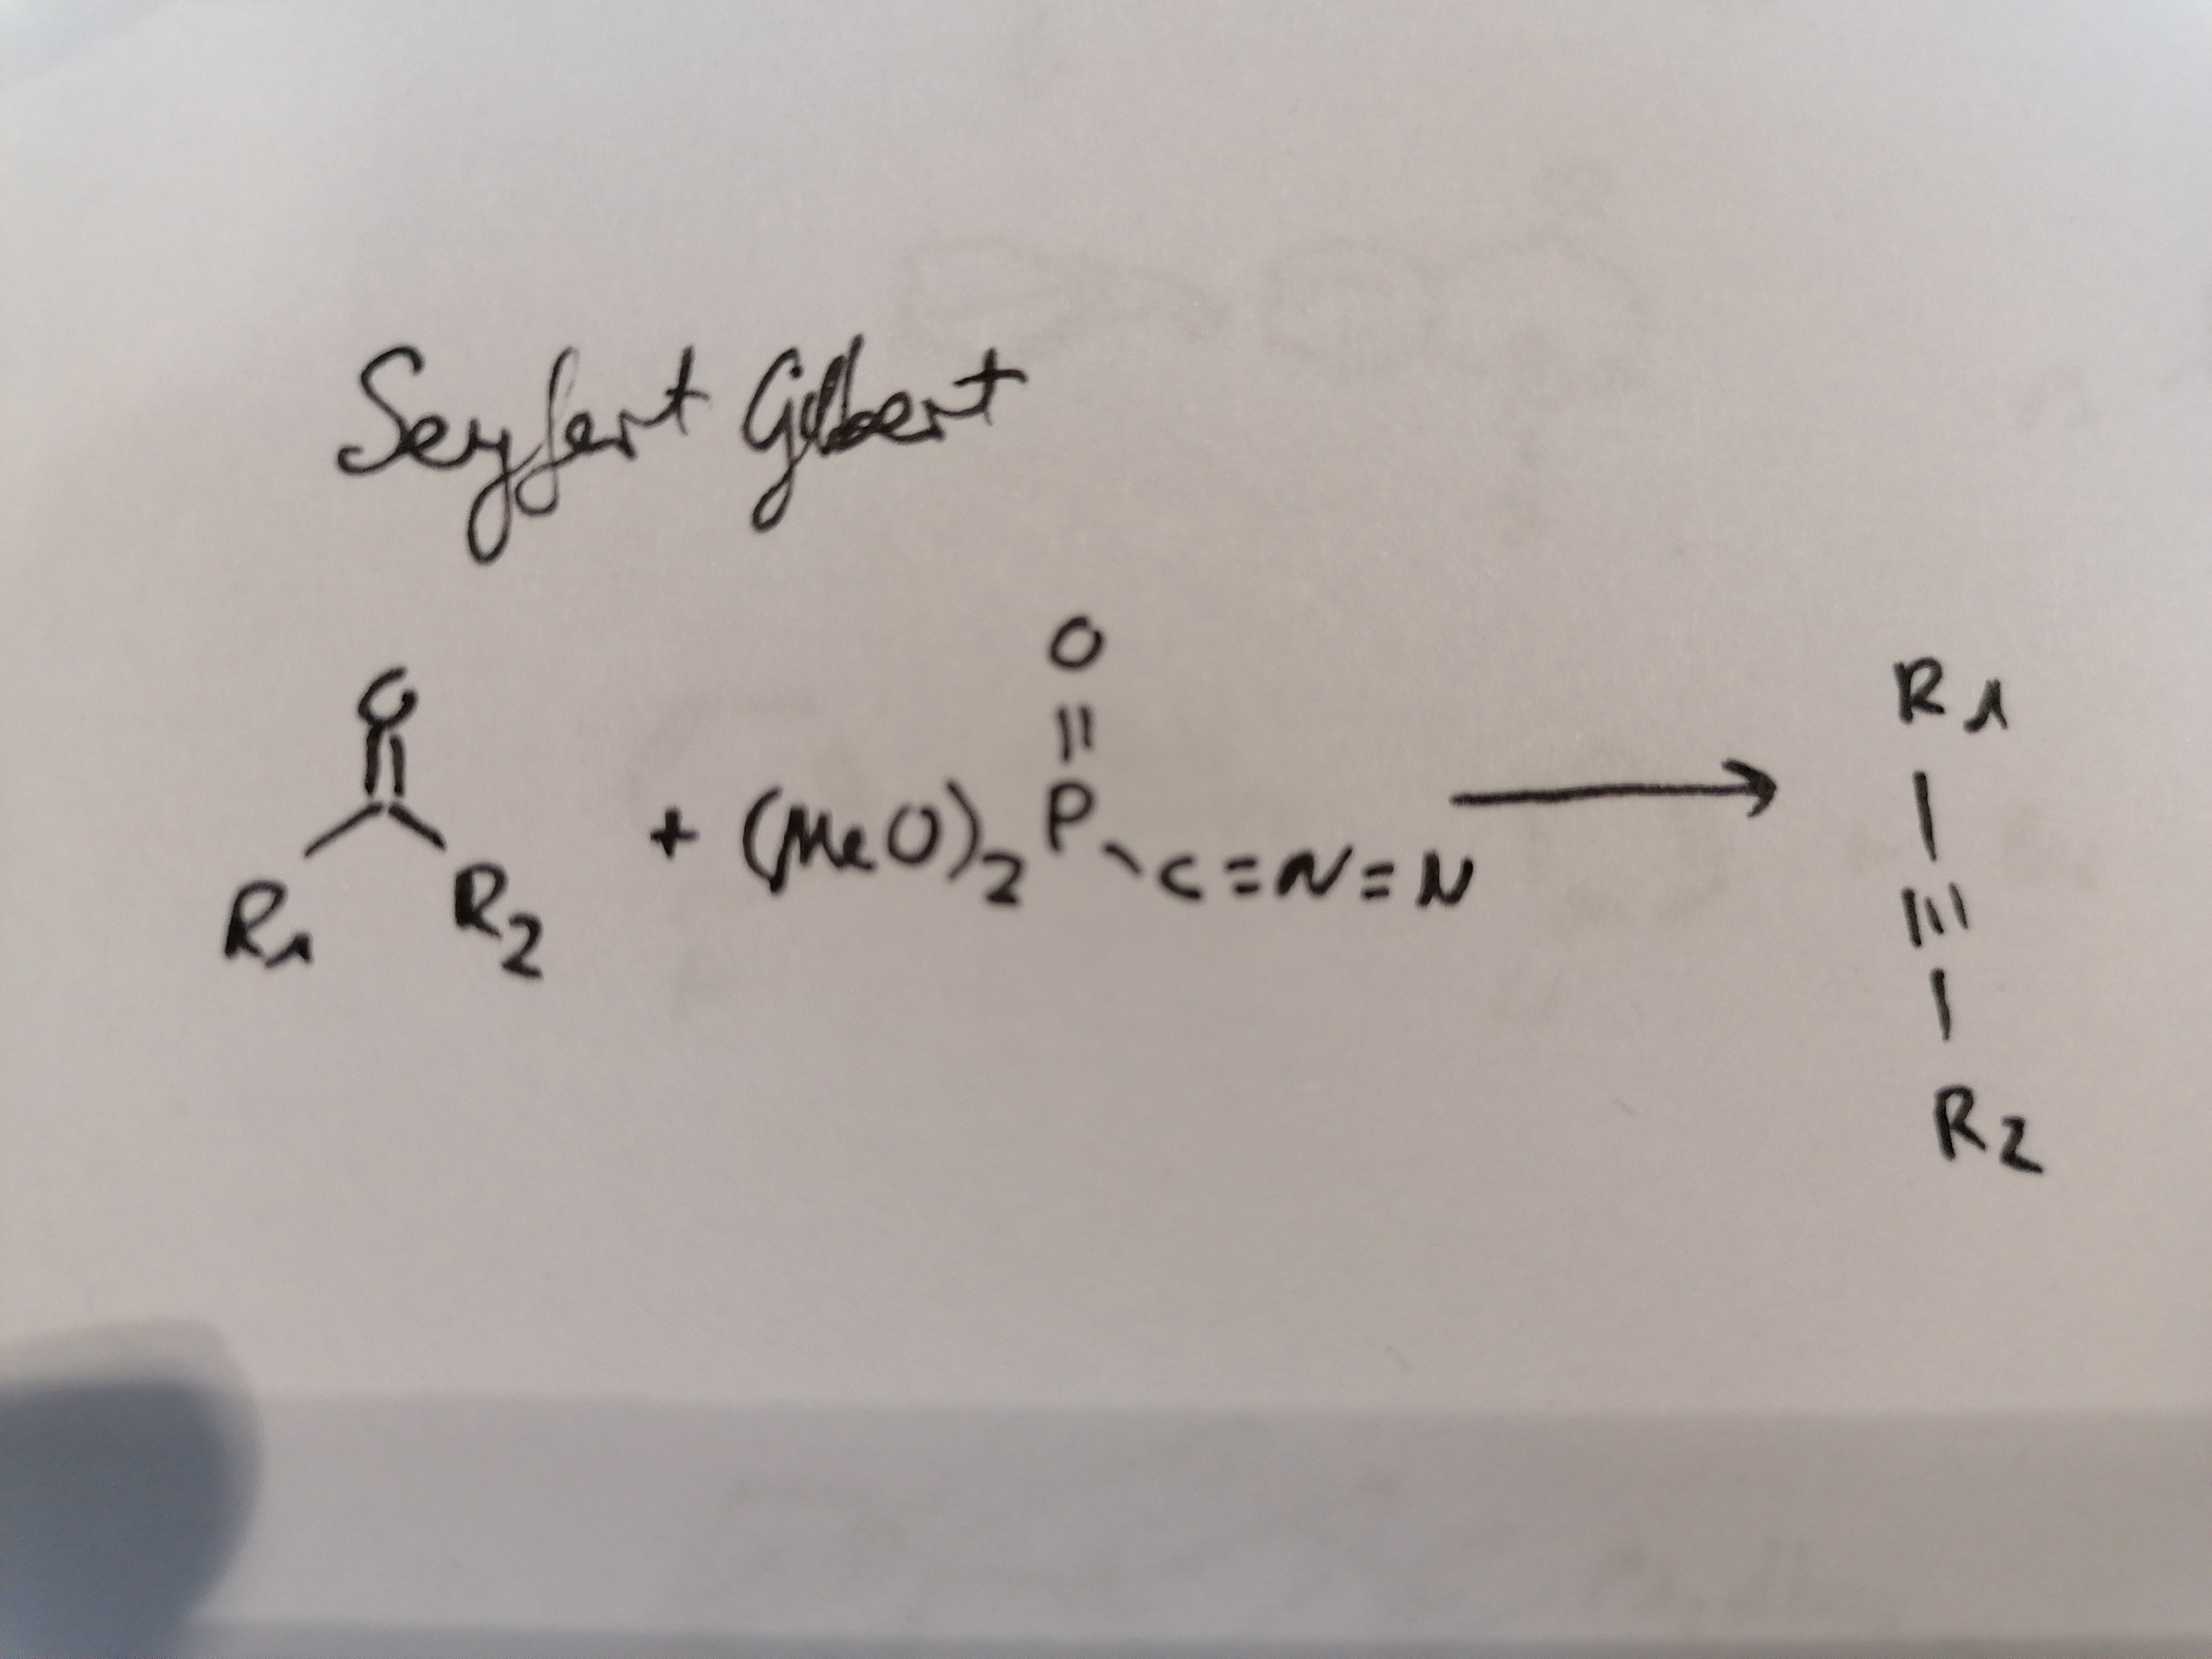 Seyfert Gilbert
O O R1
+ (MeO)2 P C=N=N
R1 R2
R2